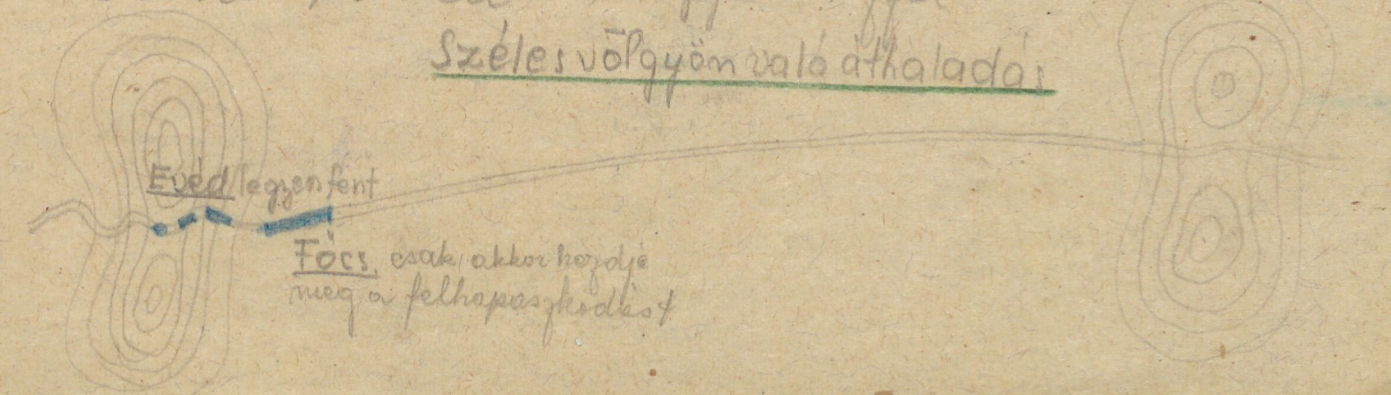 Széles völgyön való áthaladás
Evéd legyen fent
Főcs. csak akkor kezdje
meg a felkapaszkodást